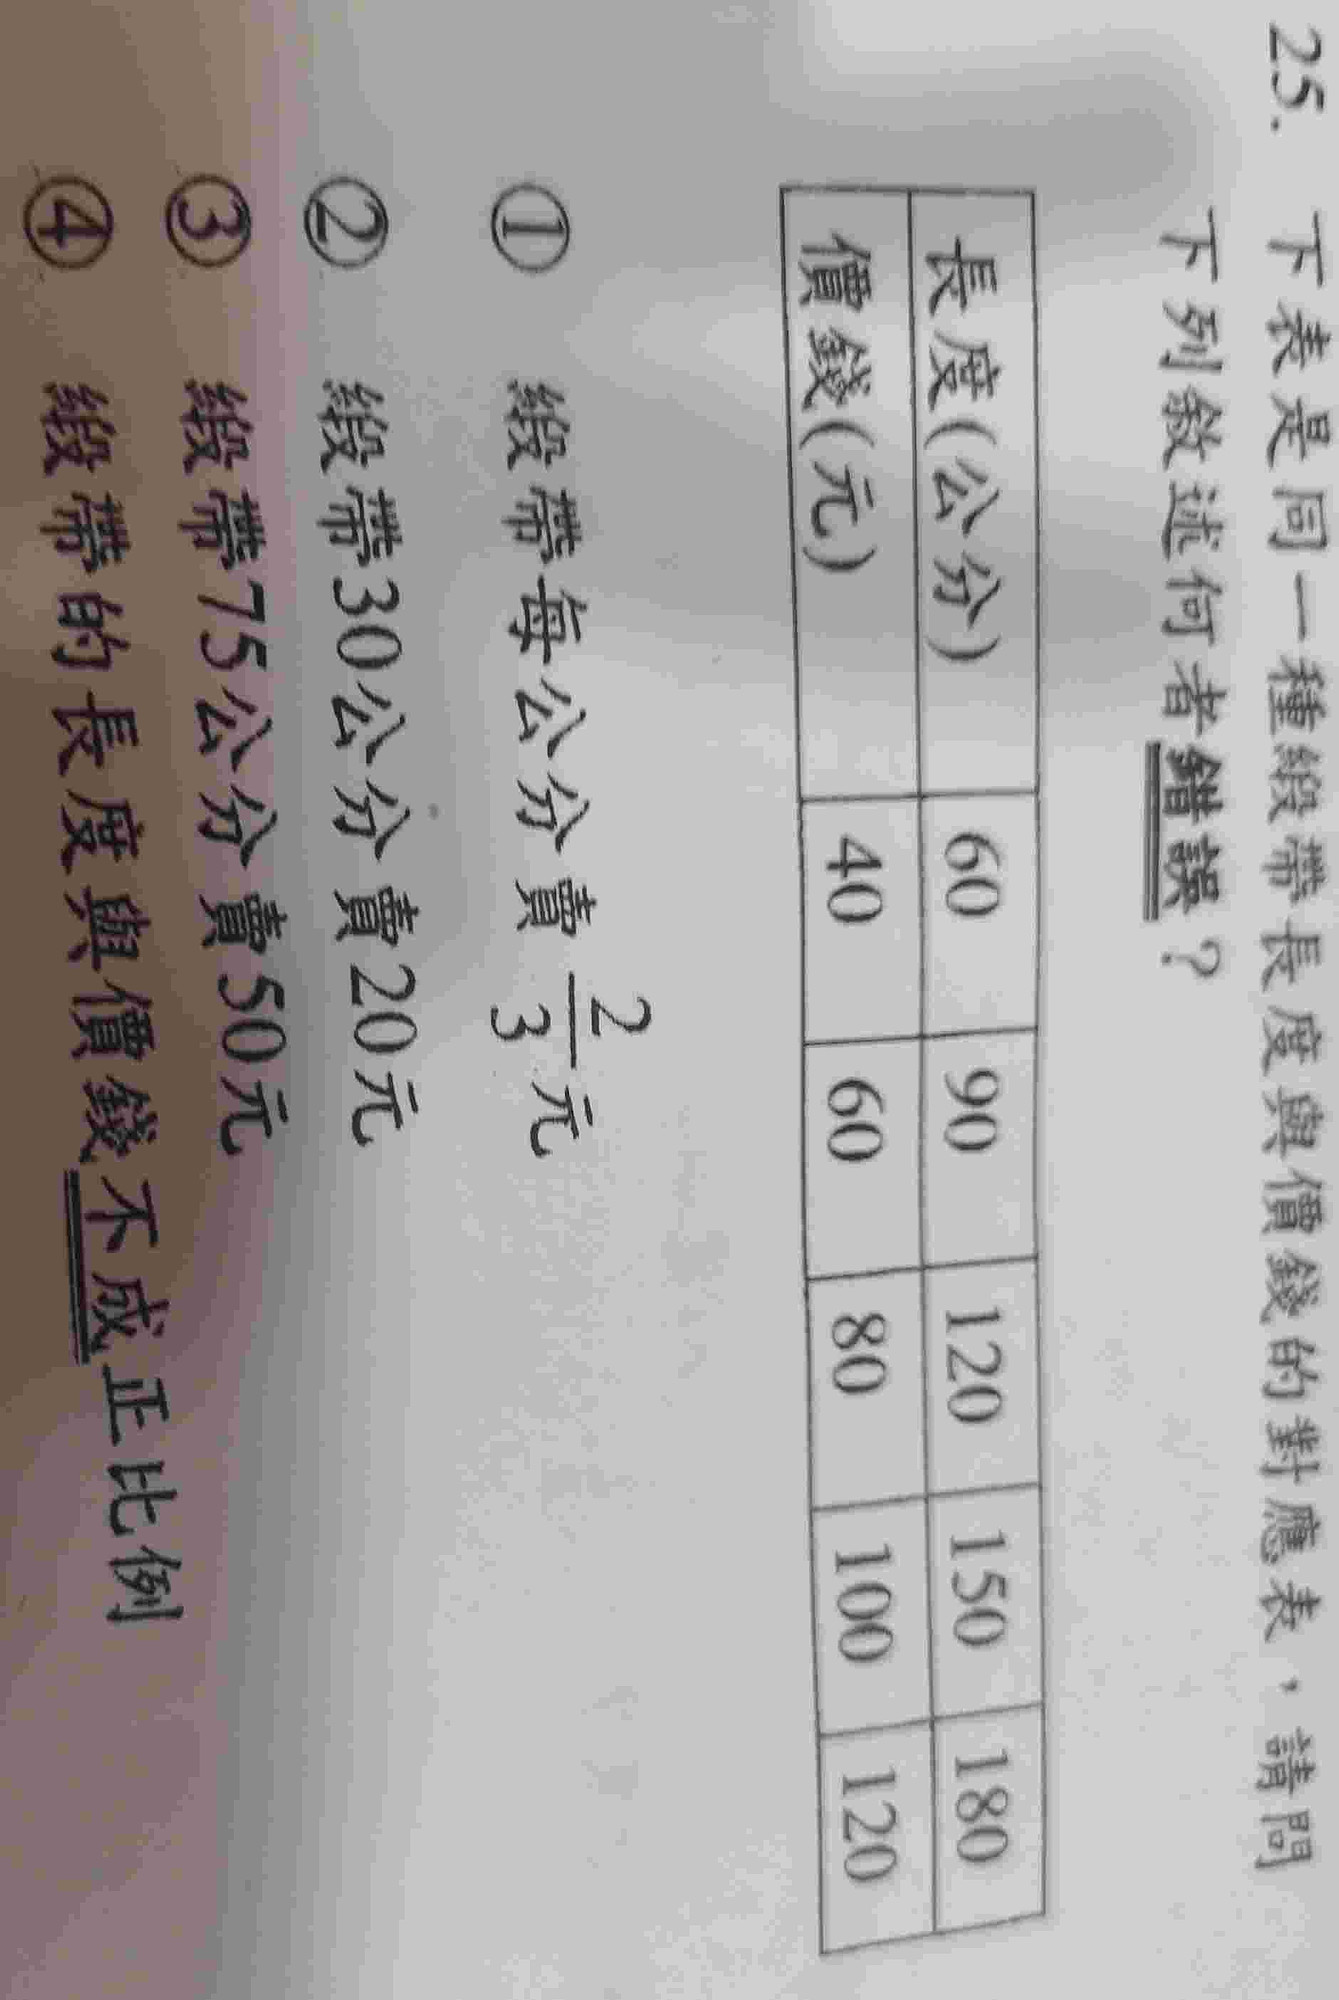 25. 下表是同一種緞帶長度與價錢的對應表，請問
下列敘述何者錯誤？
長度(公分) 60 90 120 150 180
價錢(元) 40 60 80 100 120
① 緞帶每公分賣 2/3 元
② 緞帶30公分賣20元
③ 緞帶75公分賣50元
④ 緞帶的長度與價錢不成正比例